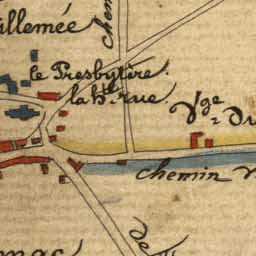 illemée
chem
le Presbytère.
la h.te rue.
Vge Du
chemin
de